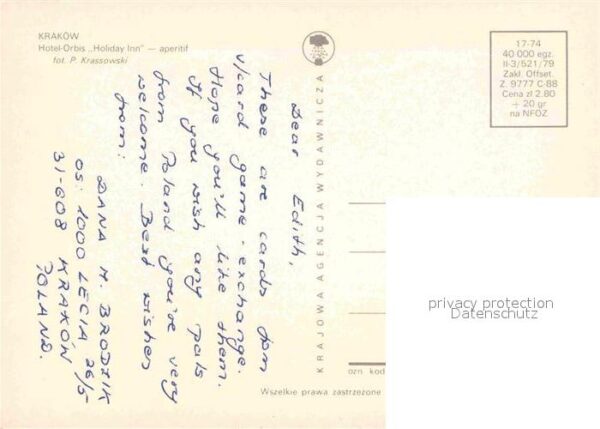 KRAKÓW
Hotel-Orbis „Holiday Inn" — aperitif
fot. P. Krassowski
Dear Edith,
These are cards from
v/card game - exchange.
Hope you'll like them.
If you wish any pals
from Poland you're very
welcome. Best wishes
from:
DANA M. BRODZIK
OS. 1000 LECIA 26/5
31-608 KRAKÓW
POLAND.
KRAJOWA AGENCJA WYDAWNICZA
17-74
40 000 egz.
II-3/521/79
Zakł. Offset.
Z. 9777 C-88
Cena zł 2.80
+ 20 gr
na NFOZ
privacy protection
Datenschutz
ozn kod
Wszelkie prawa zastrzeżone